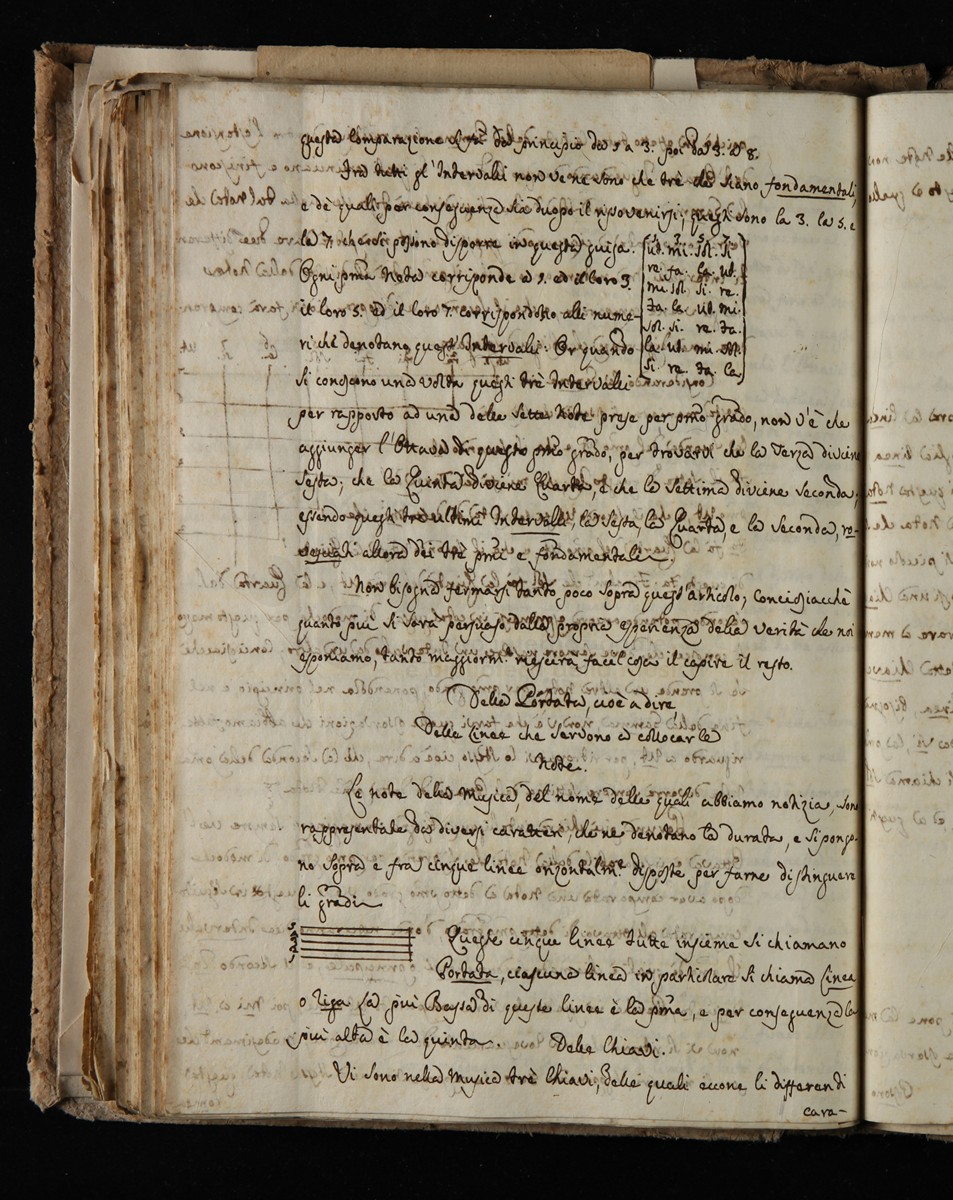 questa comparazione dal principio da 1 a 3. poi da 5. a 8.
Tra tutti gl'Intervalli non ve ne sono che trè che siano fondamentali,
e dè quali per conseguenza sia duopo il risovenirsi; questi sono la 3. la 5. e
la 7. che si possono disporre in questa guisa.
Ogni pma Nota corrisponde a 1. ed il loro 3.
il loro 5. ed il loro 7. corrispondono alli nume-
ri che denotano questi Intervalli. Or quando
si conoscono una volta questi trè Intervalli
1. 3. 5. 7.
ut. mi. sol. si
re. fa. la. ut.
mi. sol. si. re.
fa. la. ut. mi.
sol. si. re. fa.
la. ut. mi. sol.
si. re. fa. la.
per rapposto ad una delle sette Note prese per pmo grado, non v'è che
aggiunger l'Ottava di questo pmo grado, per trovarsi che la Terza diviene
sesta; che la Quinta diviene Quarta, e che la settima diviene seconda;
essendo questi tre ultimi Intervalli, la sesta, la Quarta, e la seconda, ro-
vesciati allora dei trè pmi e fondamentali.
Non bisogna fermarsi tanto poco sopra quest'articolo; conciosiacchè
quanto più si sarà persuaso dalla propria esperienza della verità che noi
esponiamo, tanto maggiormte riescirà facil cosa il capire il resto.
Della Portata, cioè a dire
Delle Linee che servono a collocar le
Note.
Le note della Musica, del nome delle quali abbiamo notizia, sono
rappresentate da diversi caratteri, che ne denotano la durata, e si pongo-
no sopra e fra cinque linee orizontalmte disposte per farne distinguere
li gradi
5
4
3
2
1
Queste cinque linee tutte insieme si chiamano
Portata, ciascuna linea in particolare si chiama Linea
o riga La più Bassa di queste linee è la pma, e per conseguenza la
più alta è la quinta.
Delle Chiavi.
Vi sono nella Musica trè Chiavi, delle quali eccone li differenti
cara-